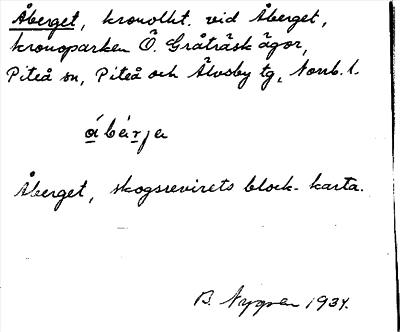 Åberget, kronolht. vid Åberget,
kronoparken Ö. Gråträsk ägor,
Piteå sn, Piteå och Älvsby tg, Norrb. l.
Åberget, skogsrevirets block-karta.
B. Nygren 1934.